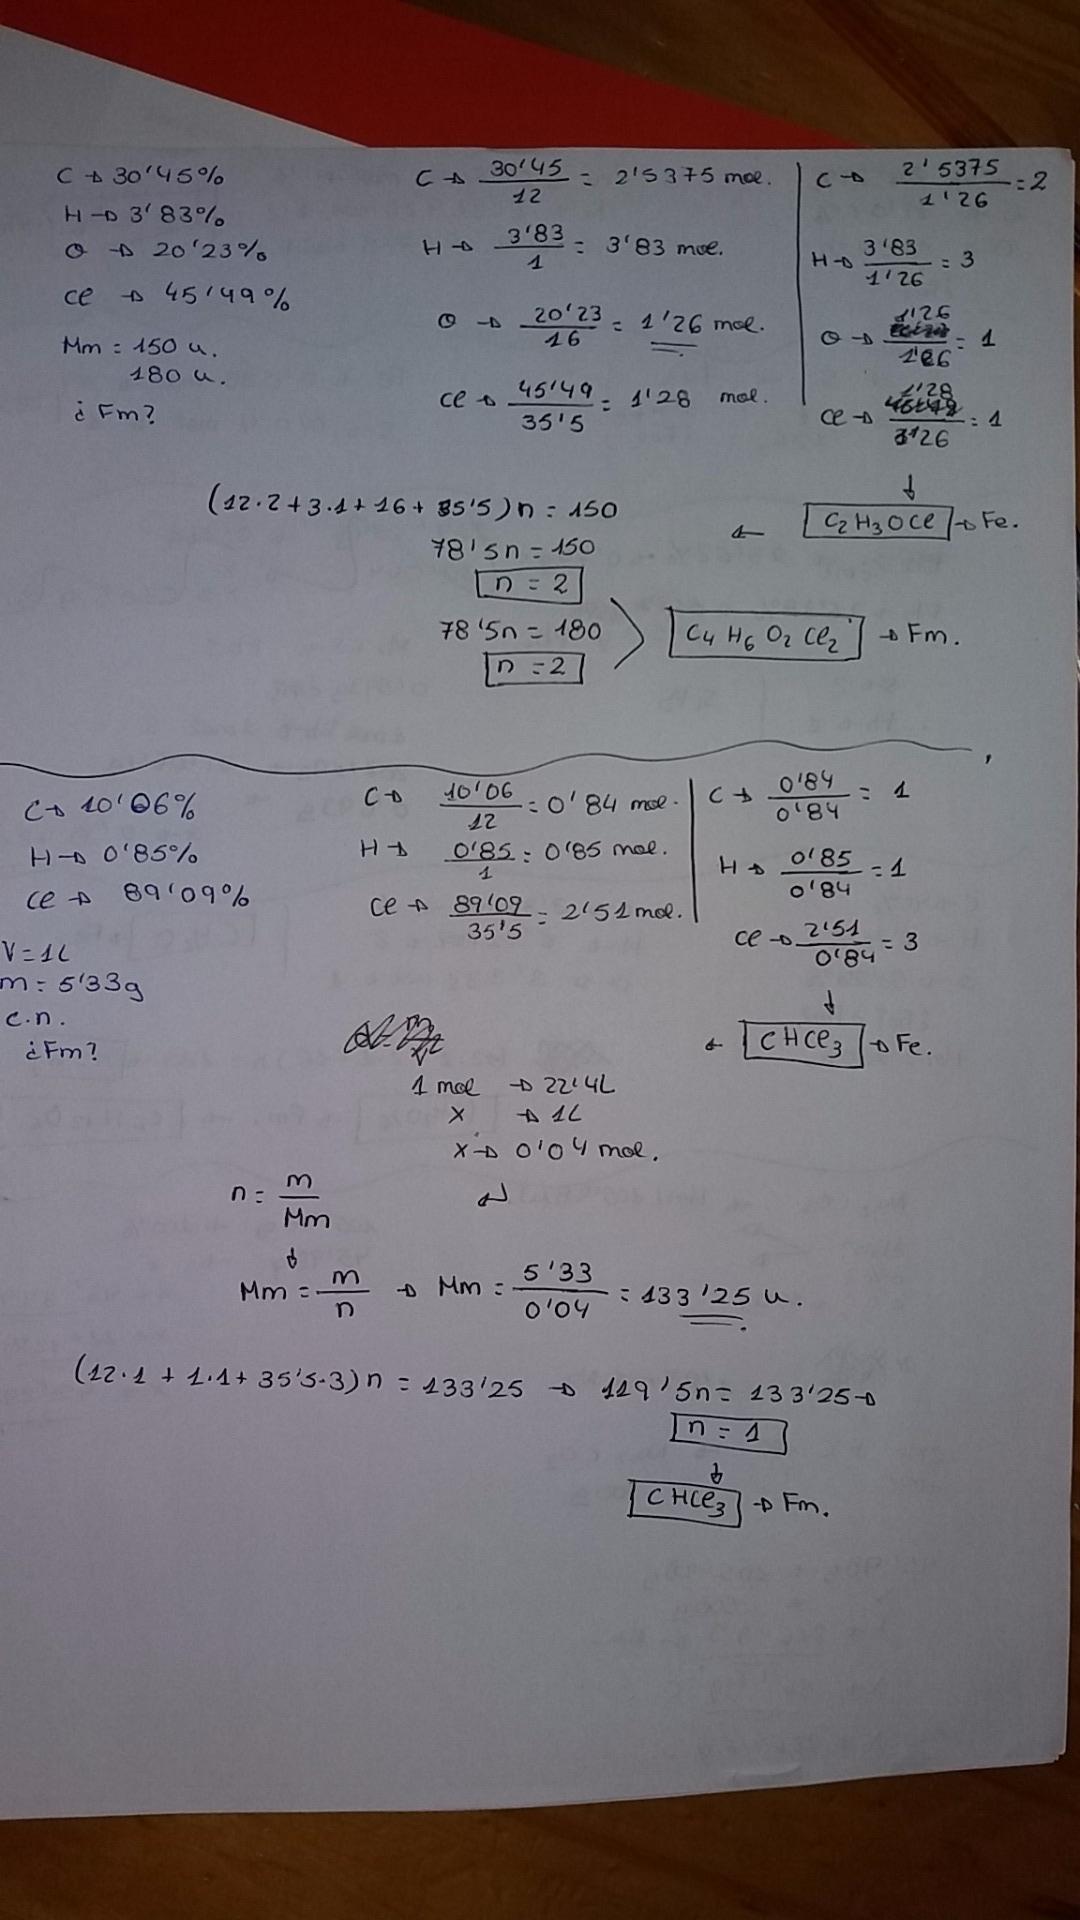 C → 30'45%
H → 3'83%
O → 20'23%
Cl → 45'49%
Mm = 150 u.
180 u.
¿Fm?
C → 30'45/12 = 2'5375 mol.
H → 3'83/1 = 3'83 mol.
O → 20'23/16 = 1'26 mol.
Cl → 45'49/35'5 = 1'28 mol.
C → 2'5375/1'26 = 2
H → 3'83/1'26 = 3
O → 1'26/1'26 = 1
Cl → 1'28/1'26 = 1
↓
C2H3OCl → Fe.
←
(12·2+3·1+16+35'5)n = 150
78'5n = 150
n = 2
78'5n = 180
n = 2
C4H6O2Cl2 → Fm.
C → 10'06%
H → 0'85%
Cl → 89'09%
V = 1L
m = 5'33g
c.n.
¿Fm?
C → 10'06/12 = 0'84 mol.
H → 0'85/1 = 0'85 mol.
Cl → 89'09/35'5 = 2'51 mol.
C → 0'84/0'84 = 1
H → 0'85/0'84 = 1
Cl → 2'51/0'84 = 3
↓
← CHCl3 → Fe.
1 mol → 22'4L
x → 1L
x → 0'04 mol.
n = m/Mm
↓
Mm = m/n → Mm = 5'33/0'04 = 133'25 u.
(12·1 + 1·1 + 35'5·3)n = 133'25 → 119'5n = 133'25 →
n = 1
↓
CHCl3 → Fm.